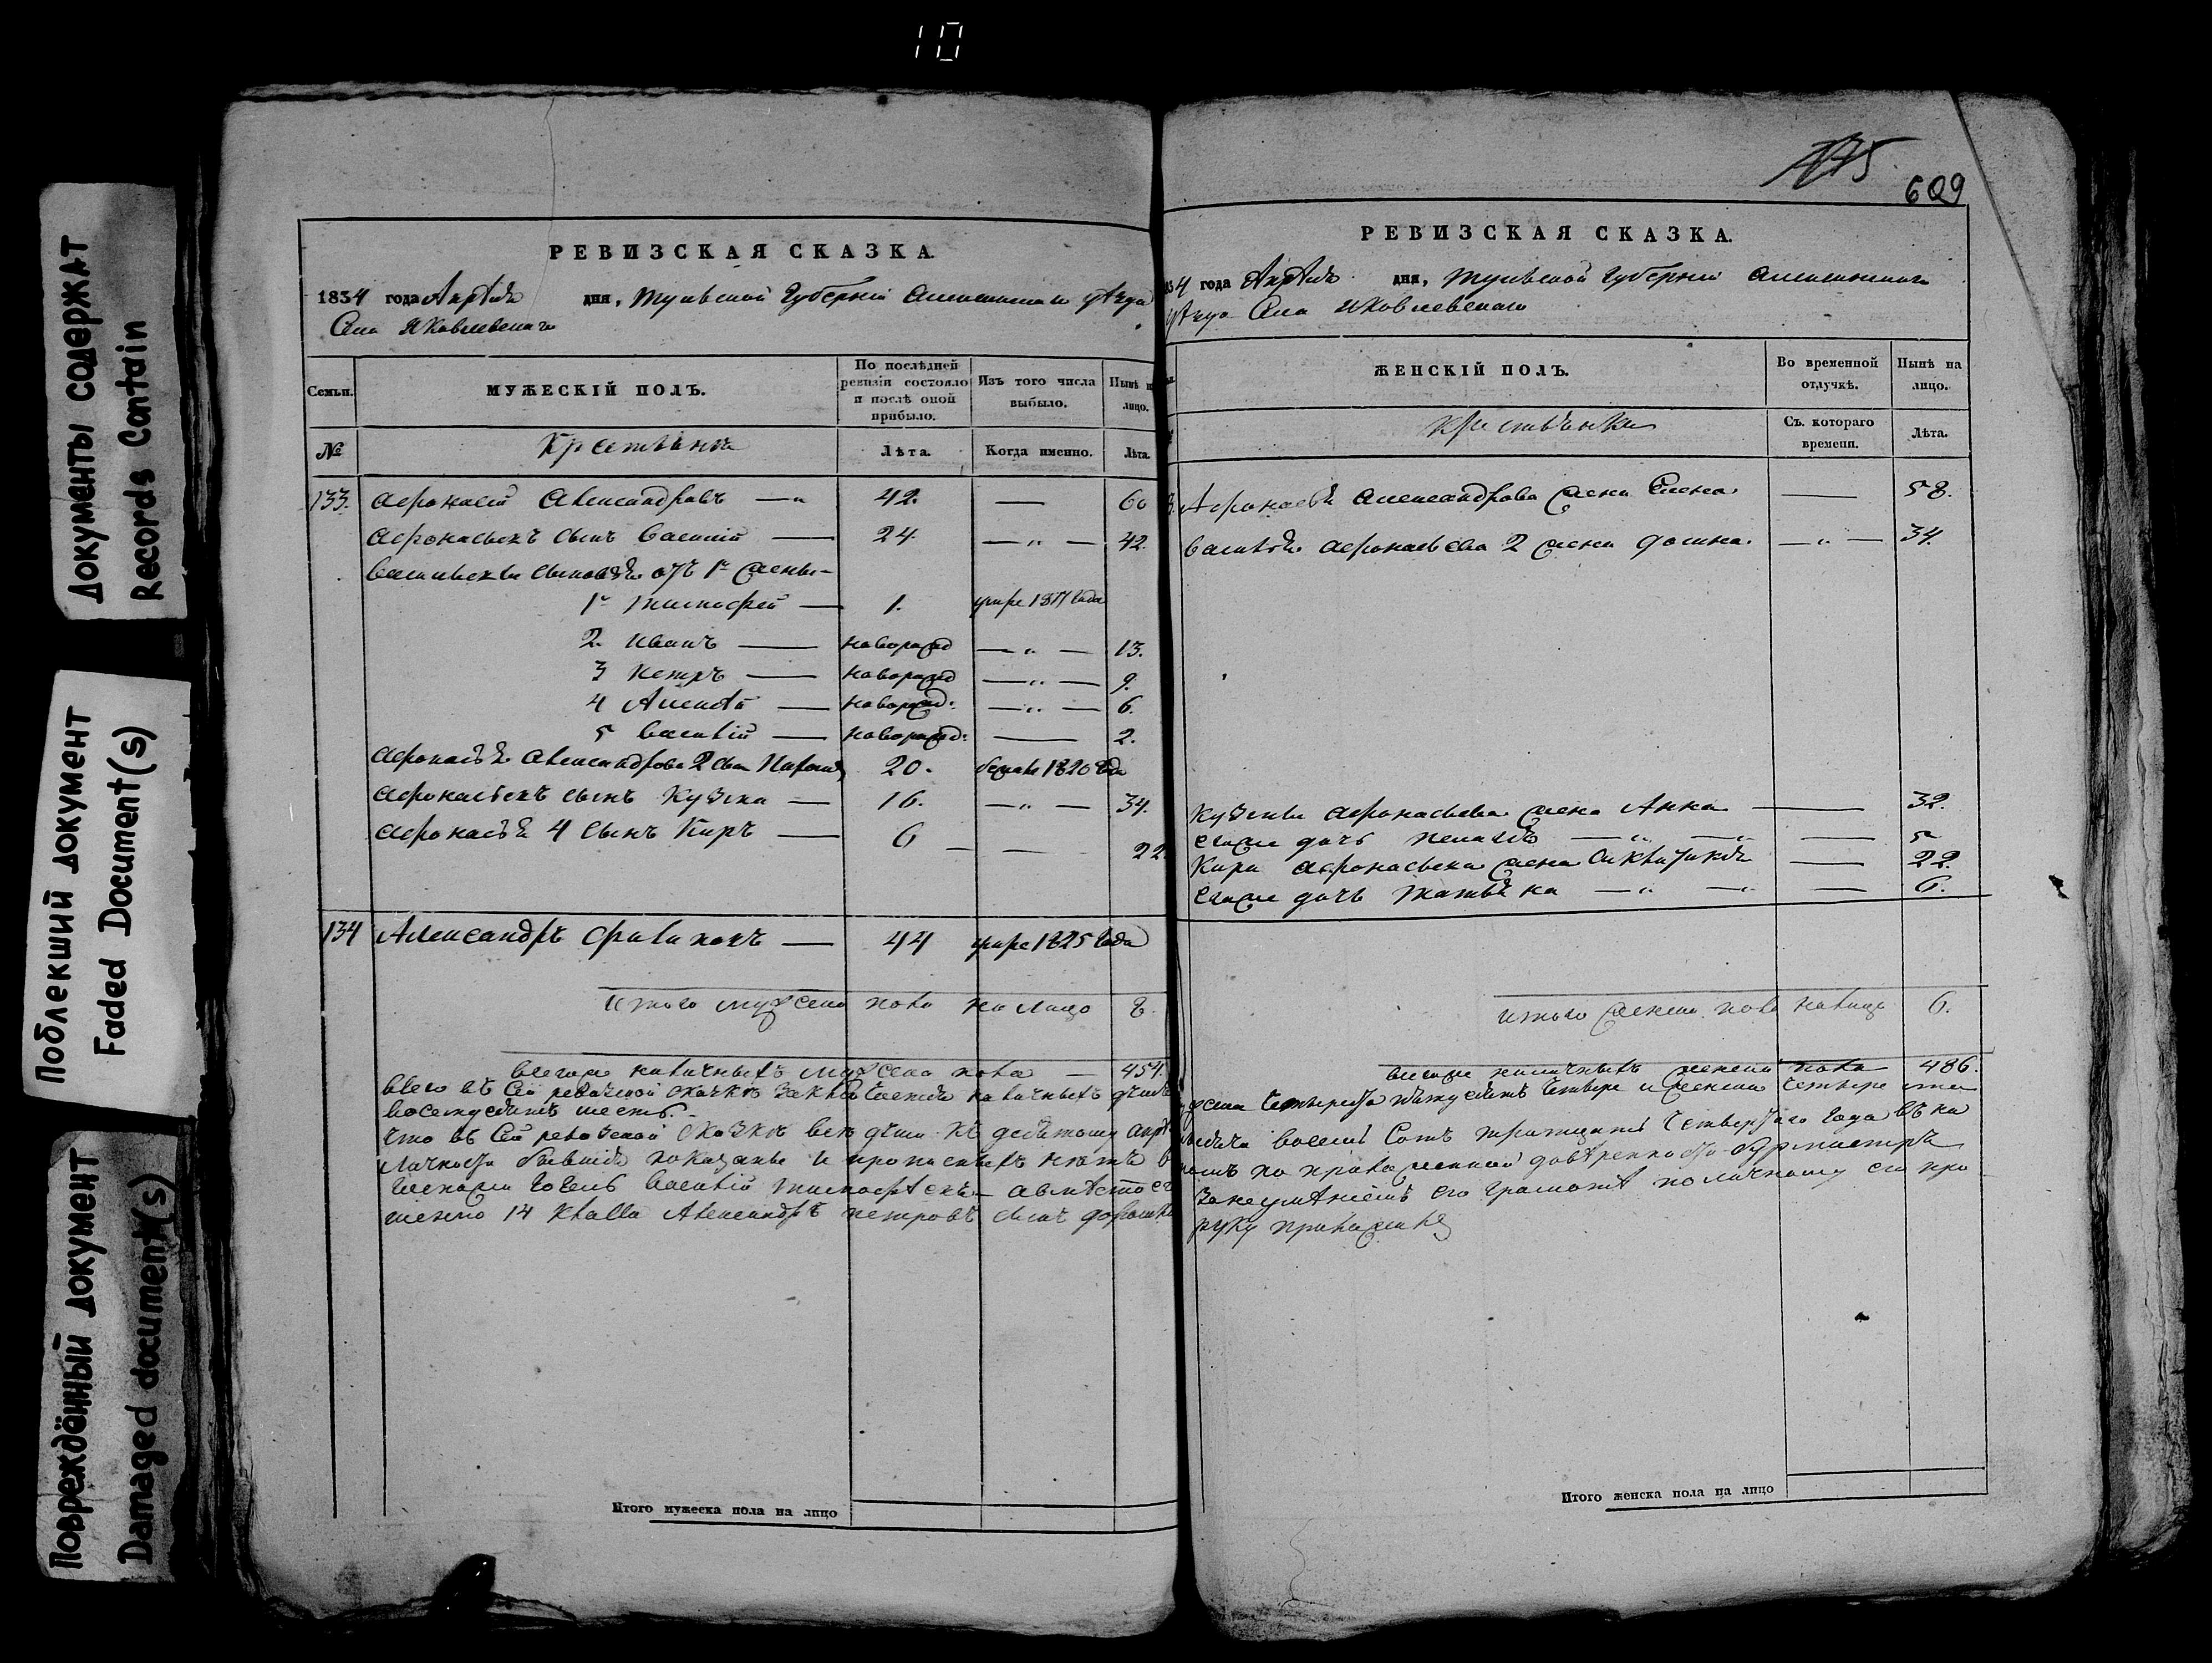 10
Документы содержат
Records Contain
Поблекший документ
Faded Document(s)
Повреждённый документ
Damaged document(s)
РЕВИЗСКАЯ СКАЗКА.
1834 года Апреля дня, Тульской Губернии Алексинского уезда
Села Яковлевскаго
Семьи. МУЖЕСКІЙ ПОЛЪ. По послѣдней ревизіи состояло и послѣ оной прибыло. Изъ того числа выбыло. Нынѣ н лицо.
№ Лѣта. Когда именно. Лѣта.
133. Афонасей Александровъ — 42. — 60
Афонасьевъ сынъ Василій — 24. — „ — 42.
Васильевы сыновья отъ 1й жены
1й Тимофей — 1. умре 1817 года
2. Иванъ — новорожд — „ — 13.
3 Петръ — новорожд — „ — 9.
4 Алексѣй — новорожд: — „ — 6.
5 Василій — новорожд: — 2.
Афонасья Александрова 2 сынъ 20. бежалъ 1820 года
Афонасьевъ сынъ Кузма — 16. — „ — 34.
Афонасья 4 сынъ Киръ — 6 — — 22
134 Александръ Филиповъ — 44 умре 1825 года
Итого мужеска пола на лицо 8.
Всего наличныхъ мужеска пола — 454.
всего въ сей ревизской сказке наличныхъ душъ
восемдесятъ шесть.
что въ сей ревизской сказке все души къ апре
личности показаны и прописныхъ нетъ
Василій Тимофеевъ а вместо ег
14 класса Александръ Петровъ сынъ
Итого мужеска пола на лицо
175
609
РЕВИЗСКАЯ СКАЗКА.
34 года Апреля дня, Тульской Губернии Алексинскаго
уезда Села Яковлевскаго
ЖЕНСКІЙ ПОЛЪ. Во временной отлучкѣ. Нынѣ на лицо.
Съ котораго времени. Лѣта.
Афонасья Александрова жена Елена — 58.
Василья Афонасьева 2 жена — „ — 34.
Кузмы Афонасьева жена Анна — 32.
его же дочь — „ — „ — 5
Кира Афонасьева жена — 22.
его же дочь Татьяна — „ — „ — 6.
Итого женска пола налицо 6.
Всего наличныхъ женска пола 486.
четыреста пятдесятъ четыре и женска четыре ста
восемь сотъ тритцать четвертаго года въ на
по приложенной доверенности Бурмистръ
за неумениемъ его грамоте по личному его про
руку приложилъ
Итого женска пола на лицо